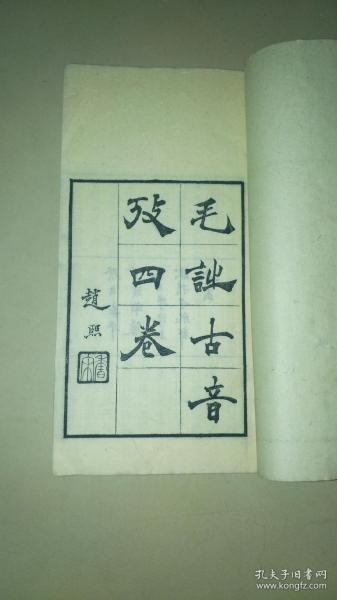 毛詩古音
攷四卷
趙熙
孔夫子旧书网
www.kongfz.com